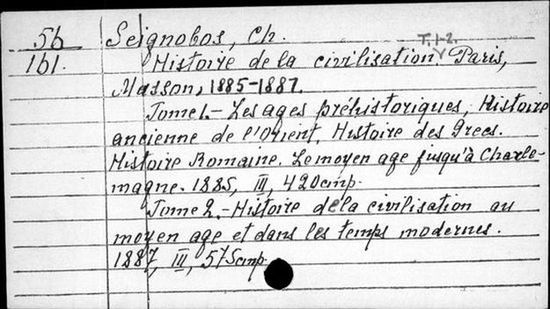 56 Seignobos, Ch.
161. Histoire de la civilisation T.1-2. Paris,
Masson, 1885-1887.
Tome 1.- Les ages préhistoriques, Histoire
ancienne de l'Orient, Histoire des Grecs.
Histoire Romaine. Le moyen age jusqu'à Charle-
magne. 1885, III, 420 стр.
Tome 2.- Histoire de la civilisation au
moyen age et dans les temps modernes.
1887, III, 575 стр.